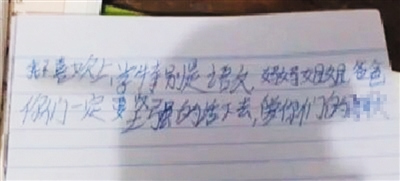 我不喜欢上学特别是语文,妈妈姐姐爸爸
你们一定要坚强的活下去,你们的